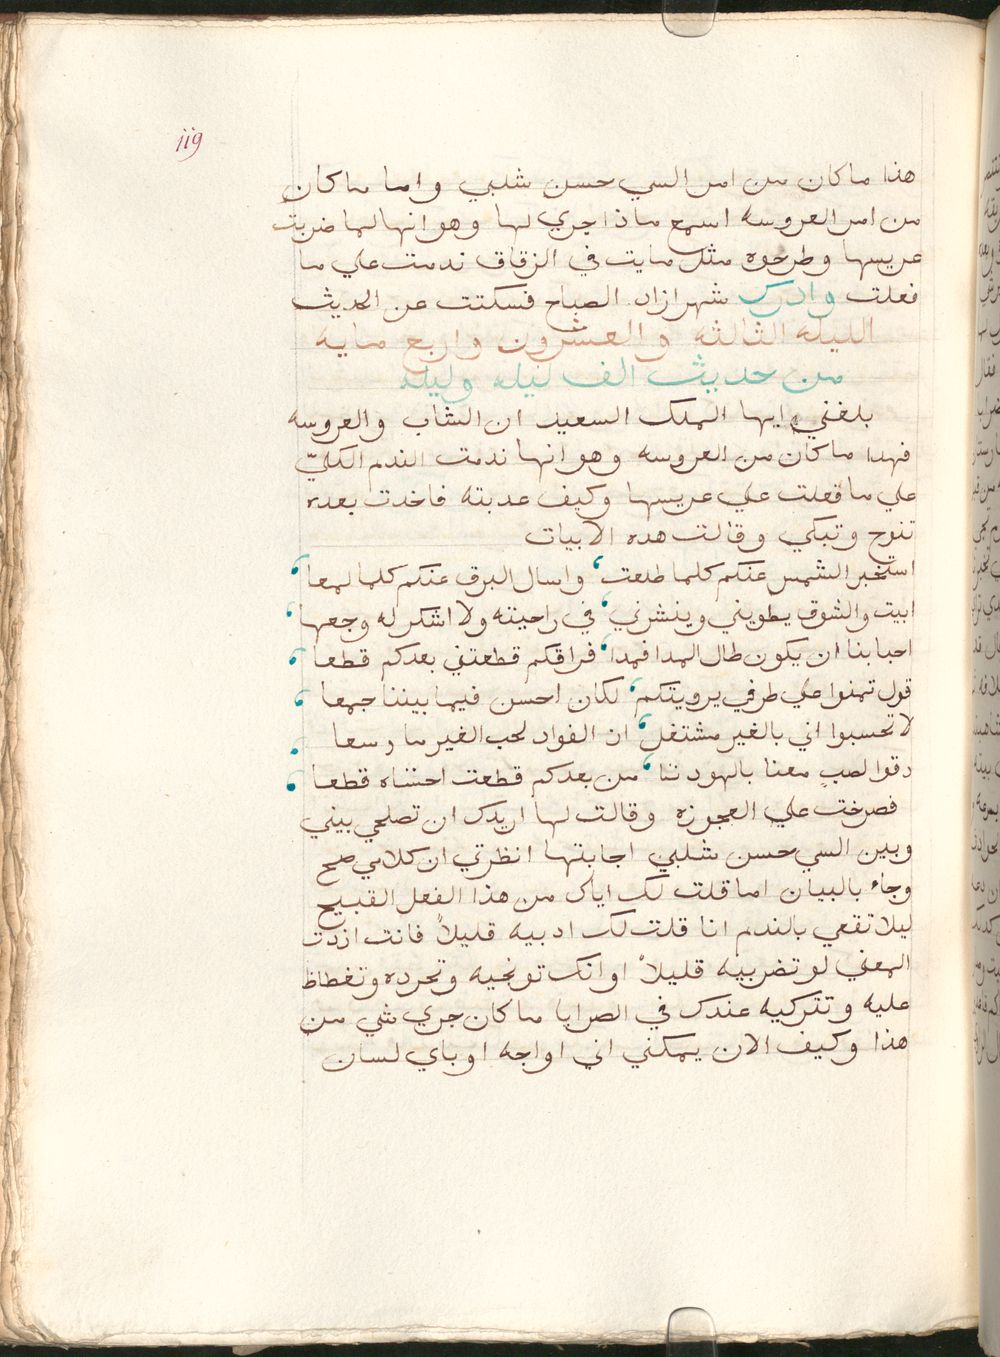 119
هذا ما كان من امر السي حسن شلبي واما ما كان
من امر العروسه اسمع ماذا جري لها وهو انها لما ضربت
عريسها وطرحوه مثل مايت في الزقاق ندمت علي ما
فعلت وادرك شهرازاد الصباح فسكتت عن الحديث
الليله الثالثه والعشرون واربع مايه
من حديث الف ليله وليله
بلغني ايها الملك السعيد ان الشاب والعروسه
فهدا ما كان من العروسه وهو انها ندمت الندم الكليّ
علي ما فعلت علي عريسها وكيف عدبته فاخدت بعده
تنوح وتبكي وقالت هده الابيات
استخبر الشمس عنكم كلما طلعت ، واسال البرق عنكم كلما لمعا ،
ابيت والشوق يطويني وينشرني ، في راحيته ولا اشكر له وجعها ،
احبابنا ان يكون طال المدا فمدا ، فراقكم قطعتني بعدكم قطعا ،
قول تمنوا علي طرفي يرويتكم ، لكان احسن فيما بيننا جمعا ،
لا تحسبوا اني بالغير مشتغل ، ان الفواد لحب الغير ما وسعا ،
رقوا لصبٍ معنا بالهود تنا ، من بعدكم قطعت احشاه قطعا ،
فصرخت علي العجوزه وقالت لها اريدك ان تصلحي بيني
وبين السي حسن شلبي اجابتها انظرتي ان كلامي صح
وجاء بالبيان اما قلت لك اياك من هذا الفعل القبيح
ليلا تقعي بالندم انا قلت لك ادبيه قليلاً فانت ازدت
المعني لو تضربيه قليلاً او انك توبخيه وتحرده وتغطاظ
عليه وتتركيه عندك في الصرايا ما كان جري شي من
هذا وكيف الان يمكني اني اواجه او باي لسان